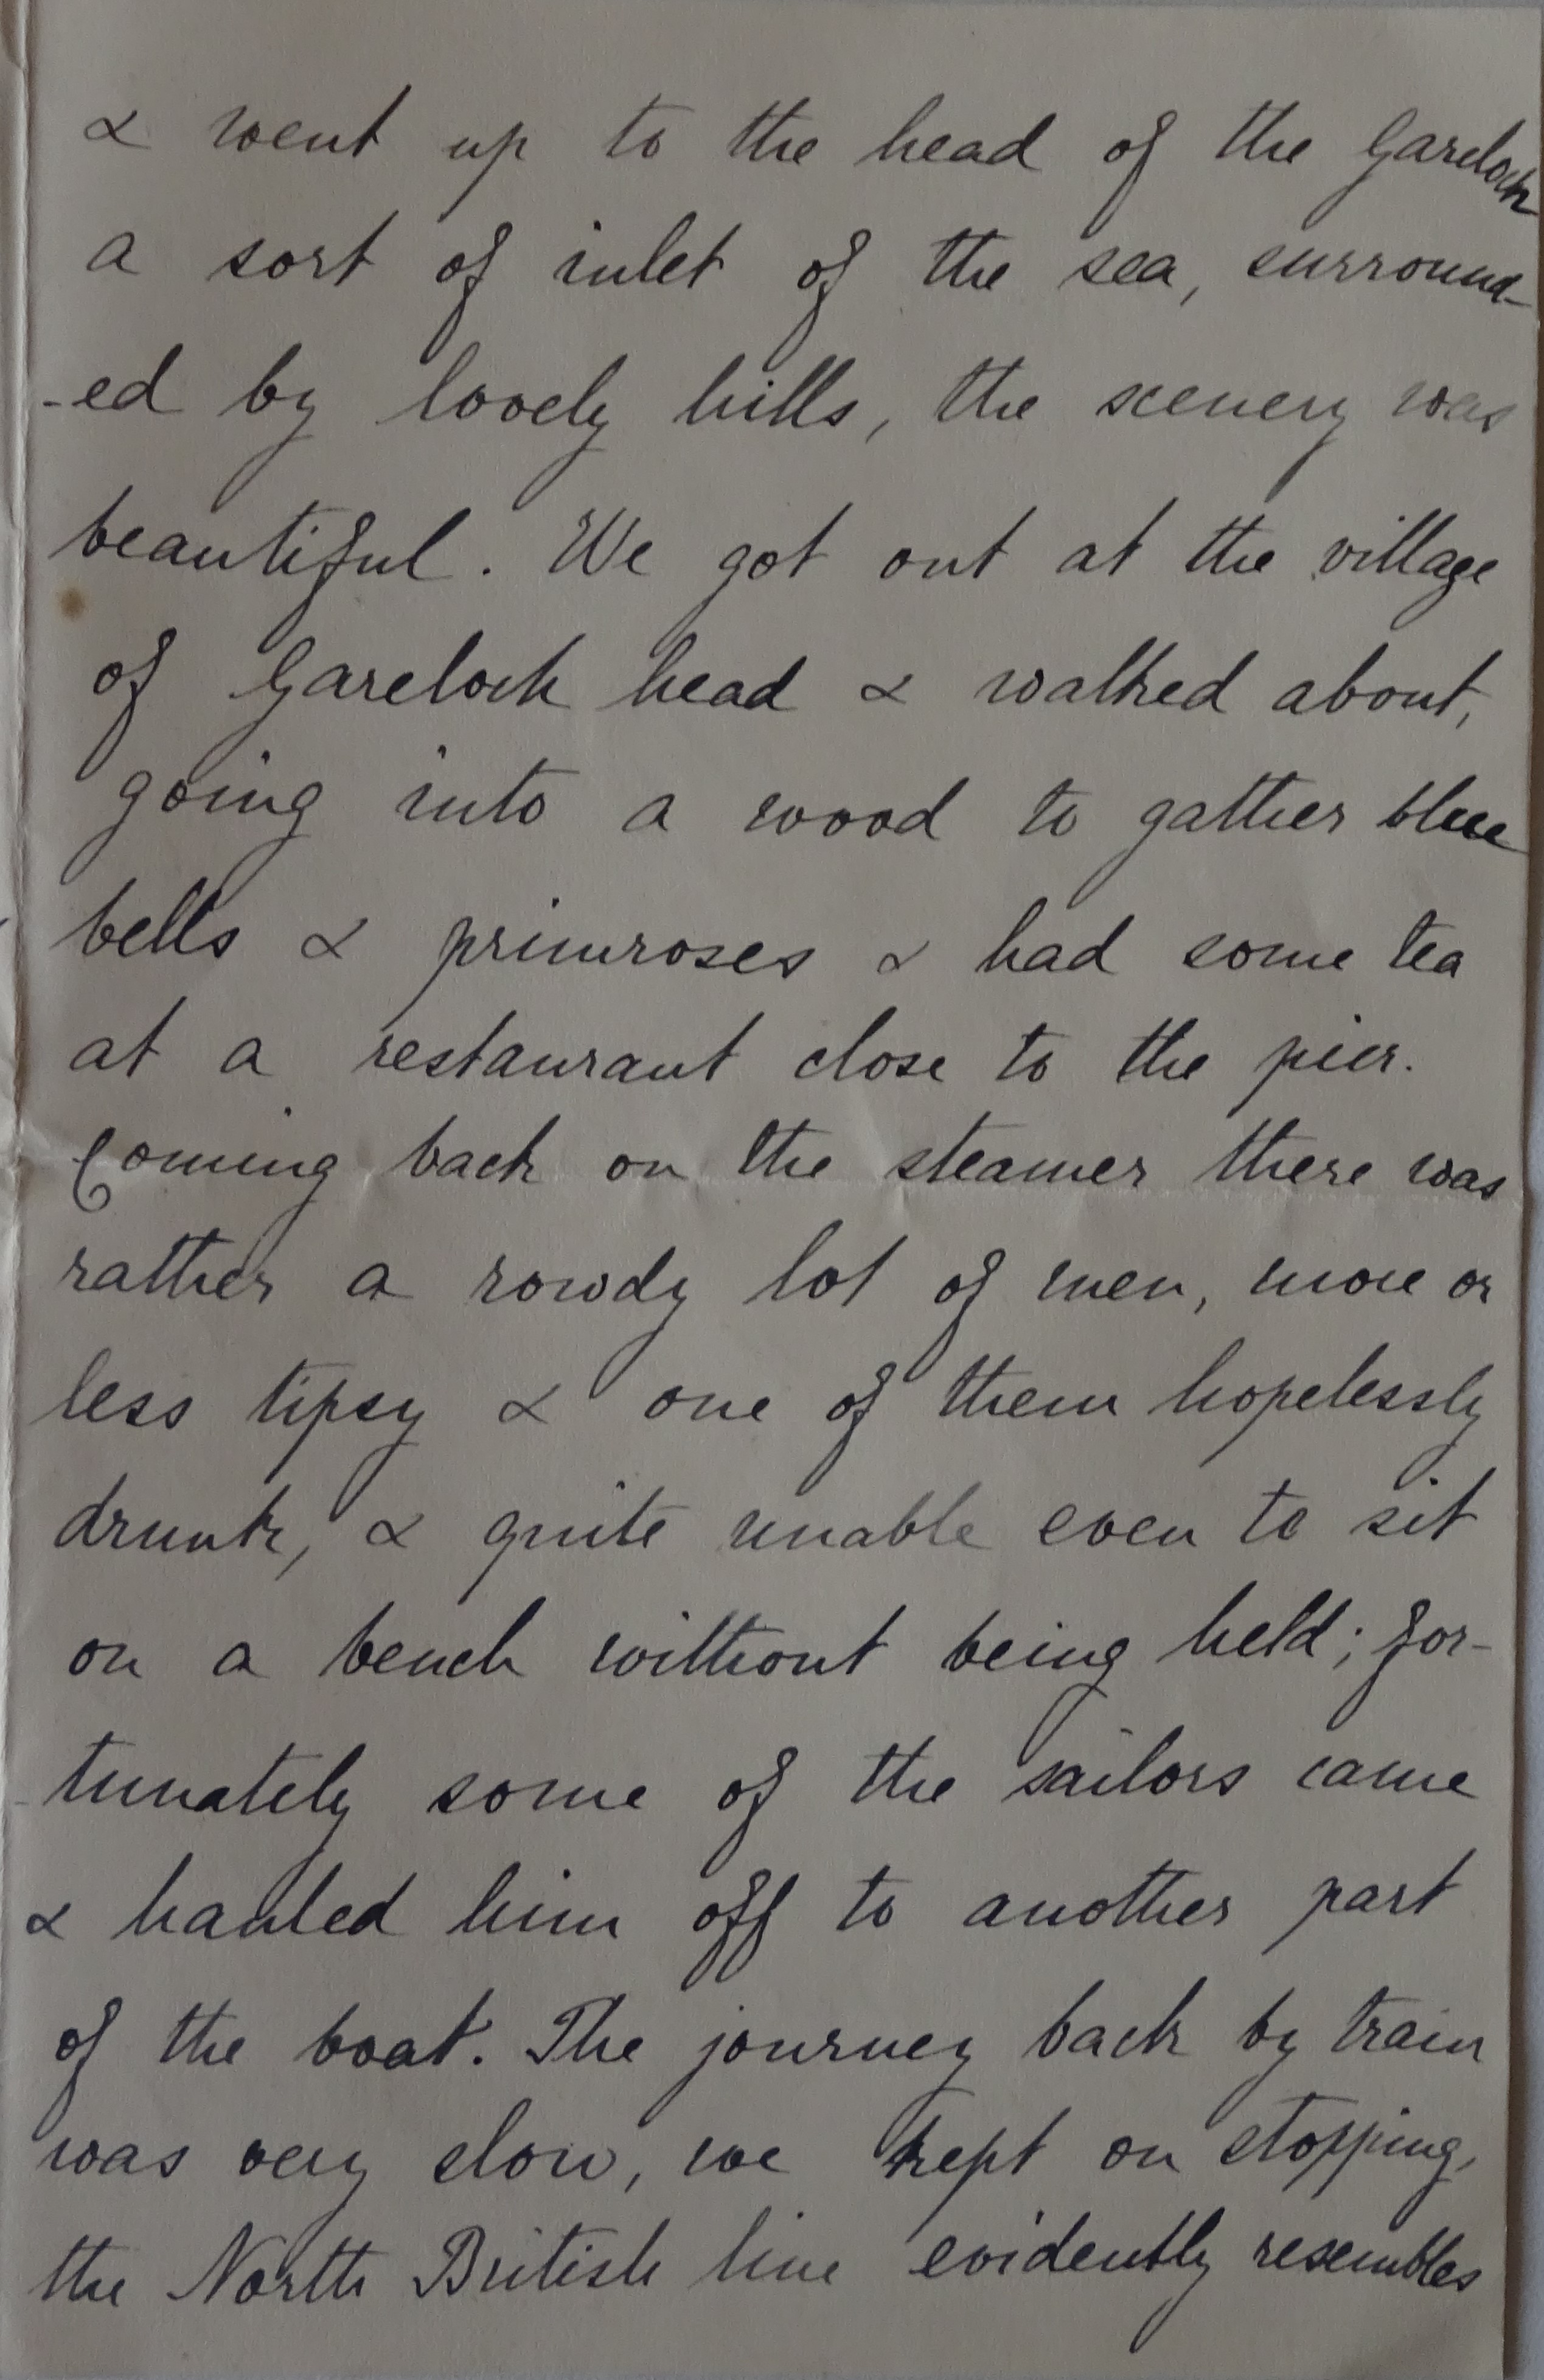 & went up to the head of the Gareloch
a sort of inlet of the sea, surround-
-ed by lovely hills, the scenery was
beautiful. We got out at the village
of Gareloch head & walked about,
going into a wood to gather blue
bells & primroses & had some tea
at a restaurant close to the pier.
Coming back on the steamer there was
rather a rowdy lot of men, more or
less tipsy & one of them hopelessly
drunk, & quite unable even to sit
on a bench without being held; for-
-tunately some of the sailors came
& hauled him off to another part
of the boat. The journey back by train
was very slow, we kept on stopping,
the North British line evidently resembles